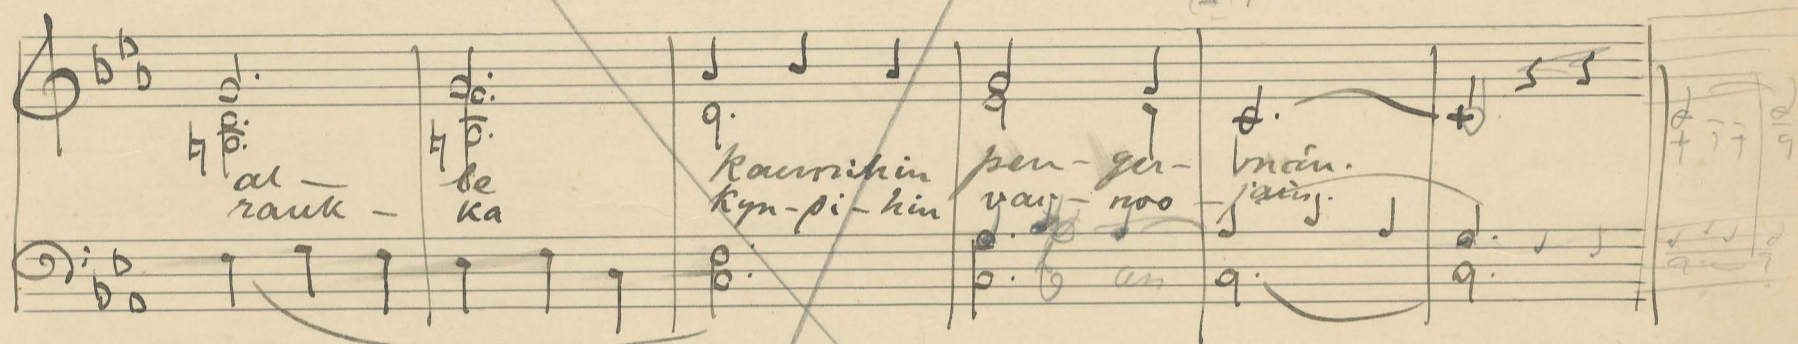 al – le kaunihin pen – ger – män.
rauk – ka kyn – pi – hin vai – noo – jain.